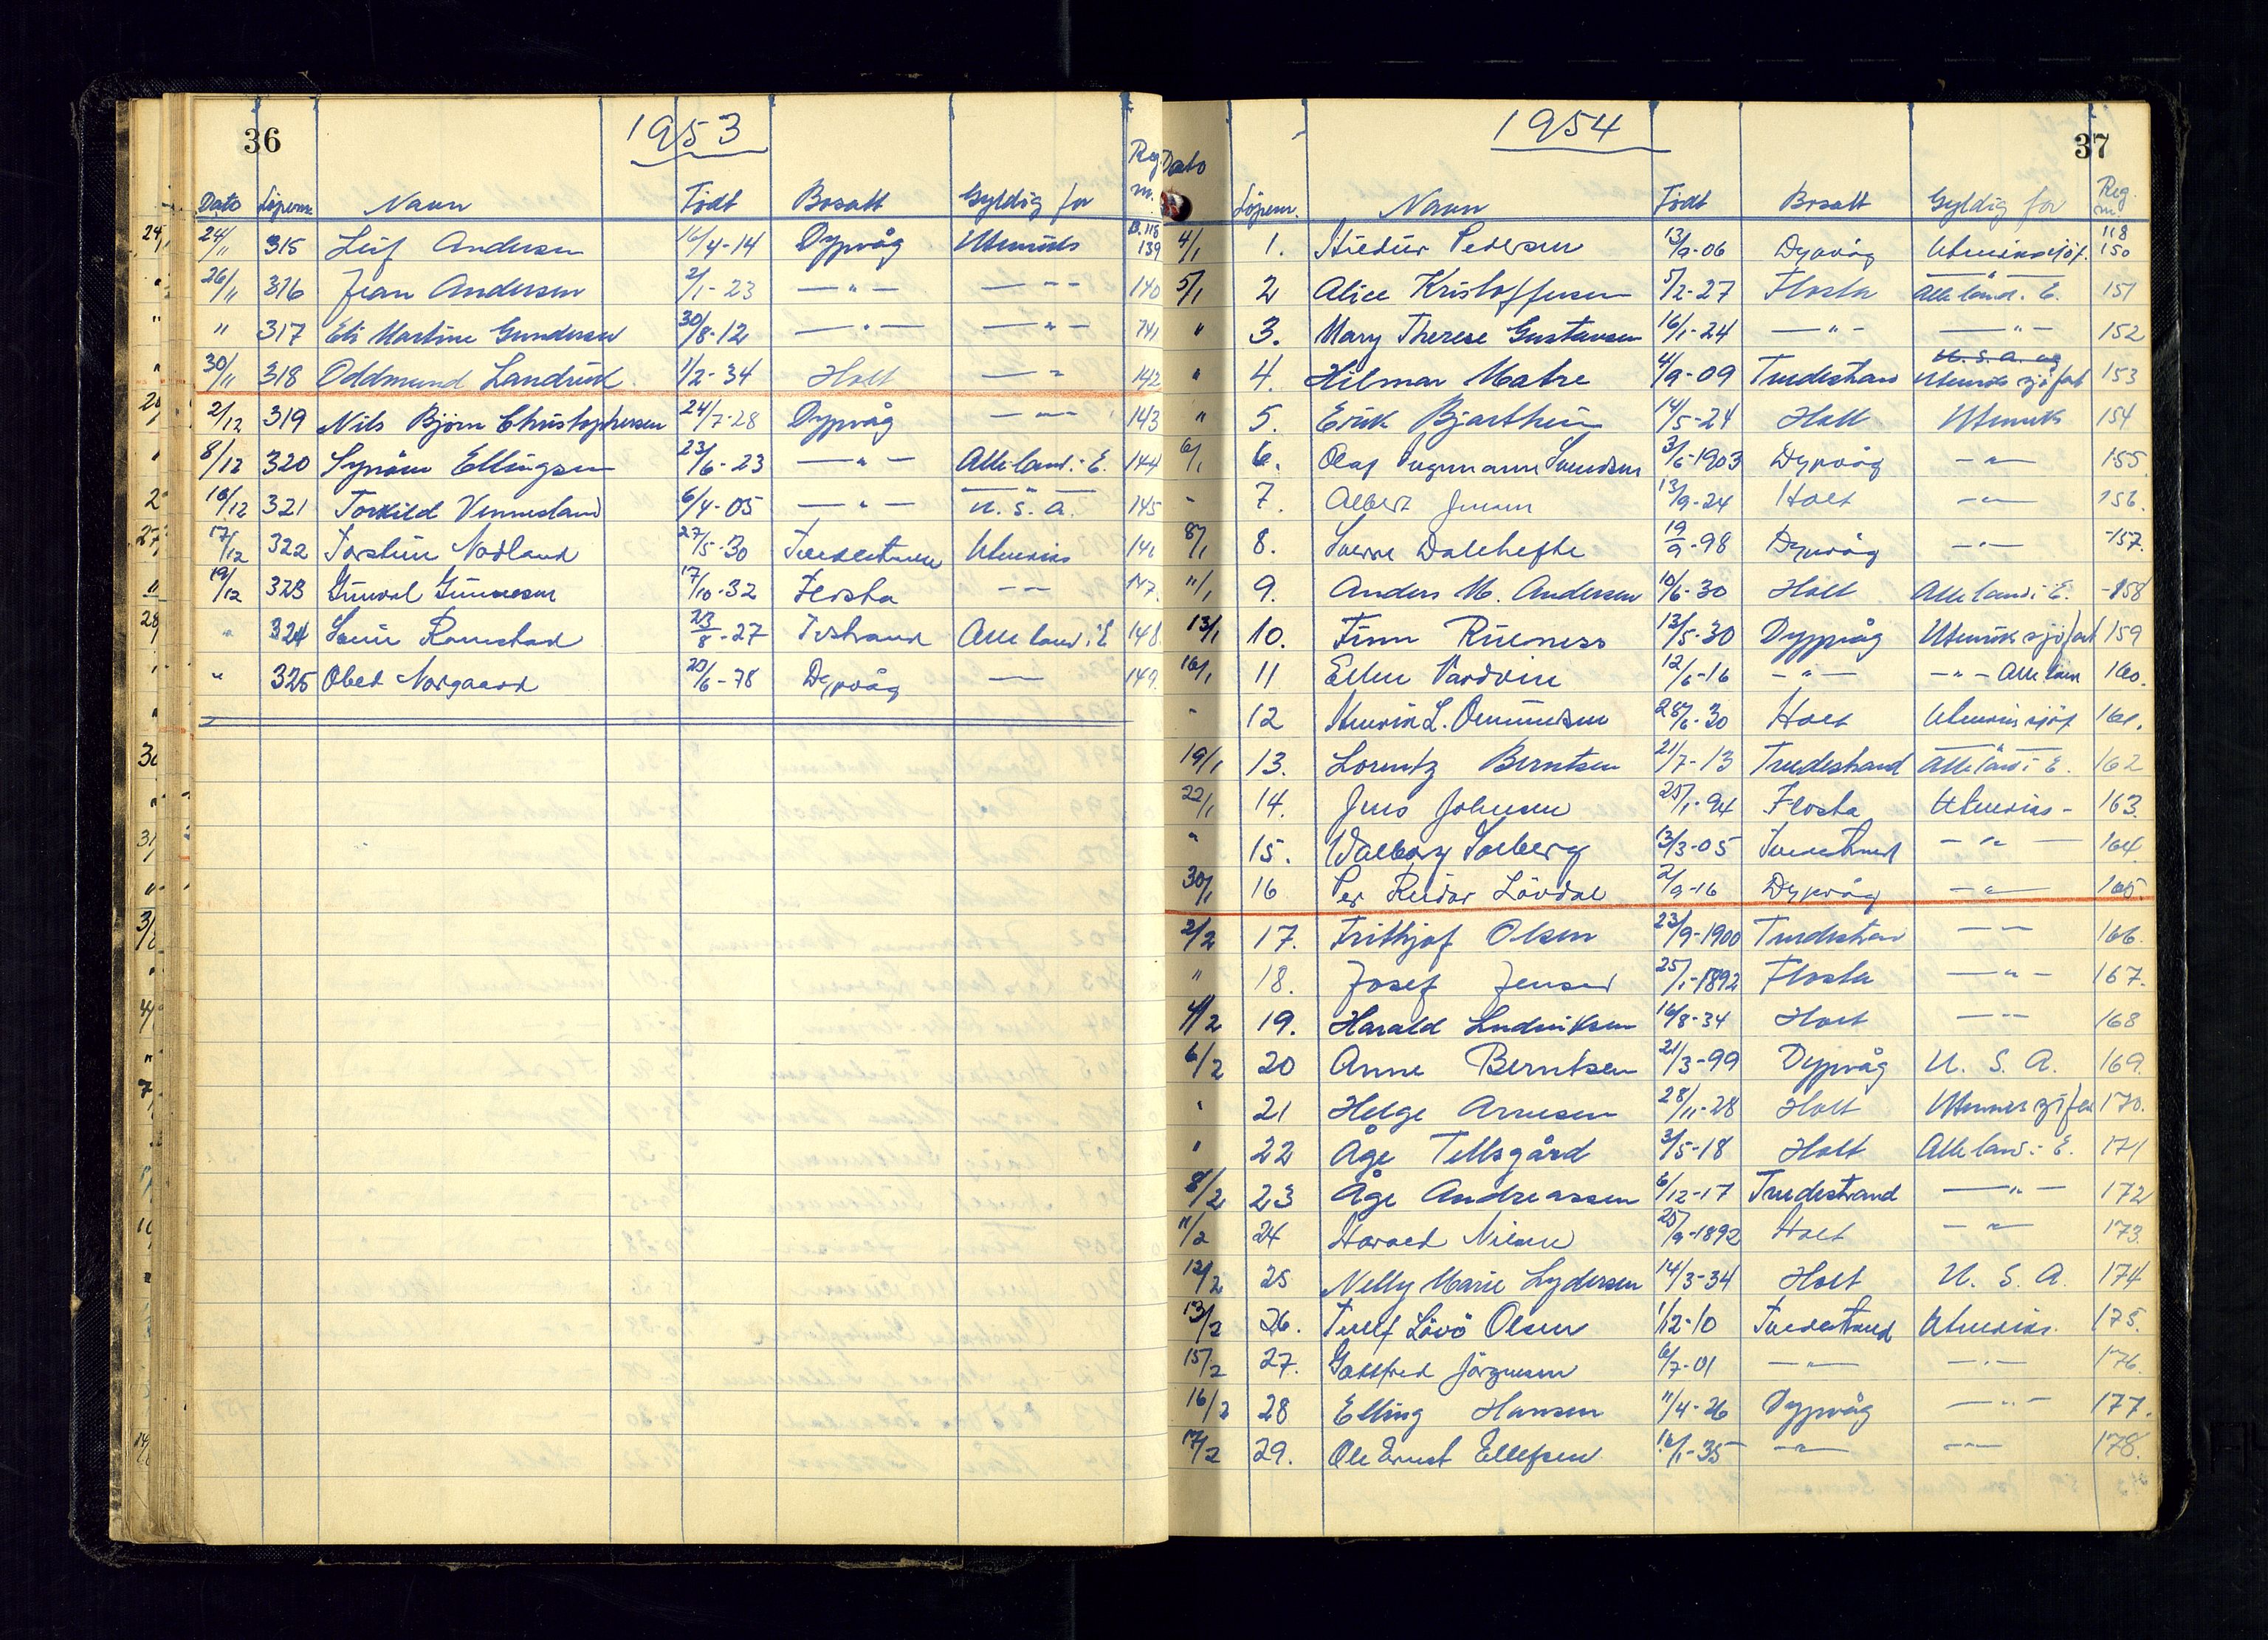 36
1953
Dato Löpenr. Navn Födt Bosatt Gyldig for Reg nr.
24/11 315 Leif Andersen 16/4-14 Dypvåg Utenriks B.118 139
26/11 316 Jean Andersen 2/1-23 — " — — " — 140
" 317 Martine Gundersen 30/8-12 — " — — " — 141
30/11 318 Oddmund Landrud 1/2-34 Holt — " 142
2/12 319 Nils Björn Christophersen 24/7-28 Dypvåg — " — 143
8/12 320 Synöve Ellingsen 23/6-23 — " — Alle land i E. 144
10/12 321 Torkild Vennesland 6/4-05 — " — U.S.A. 145
17/12 322 Torstein Nodland 27/5-30 Tvedestrand Utenriks 146
19/12 323 Gunval Gunnesen 17/10-32 Flosta — " — 147.
" 324 Ramstad 23/8-27 Alle land i E 148
" 325 Obed Norgaard 20/6-78 Dypvåg — 149.
37
1954
Dato Löpenr. Navn Födt Bosatt Gyldig for Reg nr.
4/1 1. Pedersen 13/9-06 Dypvåg Utenrikssjöf. 118 150
5/1 2 Alice Kristoffersen 5/2-27 Flosta Alle land i E. 151
" 3. Mary Therese Gustavsen 16/1-24 — " — — " — 152
" 4. Hilmar Matre 4/9-09 Tvedestrand U.S.A. og Utenriks sjöfart 153
" 5. Erik Bjorthein 14/5-24 Holt Utenriks 154
6/1 6. Olaf Svendsen 3/6-1903 Dypvåg — " — 155
" 7. Albert Jensen 13/9-24 Holt — " — 156.
8/1 8. Sverre Dalehefte 19/9-98 Dypvåg — " — 157.
11/1 9. Anders M. Andersen 10/6-30 Holt Alle land i E. 158
13/1 10. Finn Riisness 13/5-30 Dypvåg Utenriks sjöfart 159
16/1 11 Ellen 12/6-16 — " — — " — Alle land 160.
" 12 Henrik L. Omundsen 28/6-30 Holt Utenriks sjöf 161.
19/1 13. Lorentz Berntsen 21/7-13 Tvedestrand Alle land i E. 162
22/1 14. Jens Johnsen 25/1-94 Flosta Utenriks - 163.
" 15. Walborg Solberg 13/3-05 Tvedestrand — " — 164.
30/1 16 Per Reidar Lövdal 2/9-16 Dypvåg — " — 165.
2/2 17. Frithjof Olsen 23/9-1900 Tvedestrand — " — 166.
" 18. Josef Jensen 25/1-1892 Flosta — " — 167.
4/2 19. Harald Ludviksen 16/8-34 Holt — " — 168
6/2 20 Anne Berntsen 21/3-99 Dypvåg U.S.A. 169.
" 21 Helge Arnesen 28/11-28 Holt Utenriks sjöfart 170.
" 22 Åge Tellsgård 3/5-18 Holt Alle land i E. 171
8/2 23 Åge Andreassen 6/12-17 Tvedestrand — " — 172
11/2 24 Harald Nilsen 25/9-1892 Holt — " — 173.
12/2 25 Nelly Marie Lydersen 14/3-34 Holt U.S.A. 174
13/2 26. Tellef Lövö Olsen 1/12-10 Tvedestrand Utenriks. 175.
15/2 27. Gottfred Jörgensen 6/7-01 — " — — " — 176.
16/2 28 Elling Hansen 11/4-26 Dypvåg — " — 177.
17/2 29. Ole Ernst Ellefsen 16/1-35 — " — — " — 178.